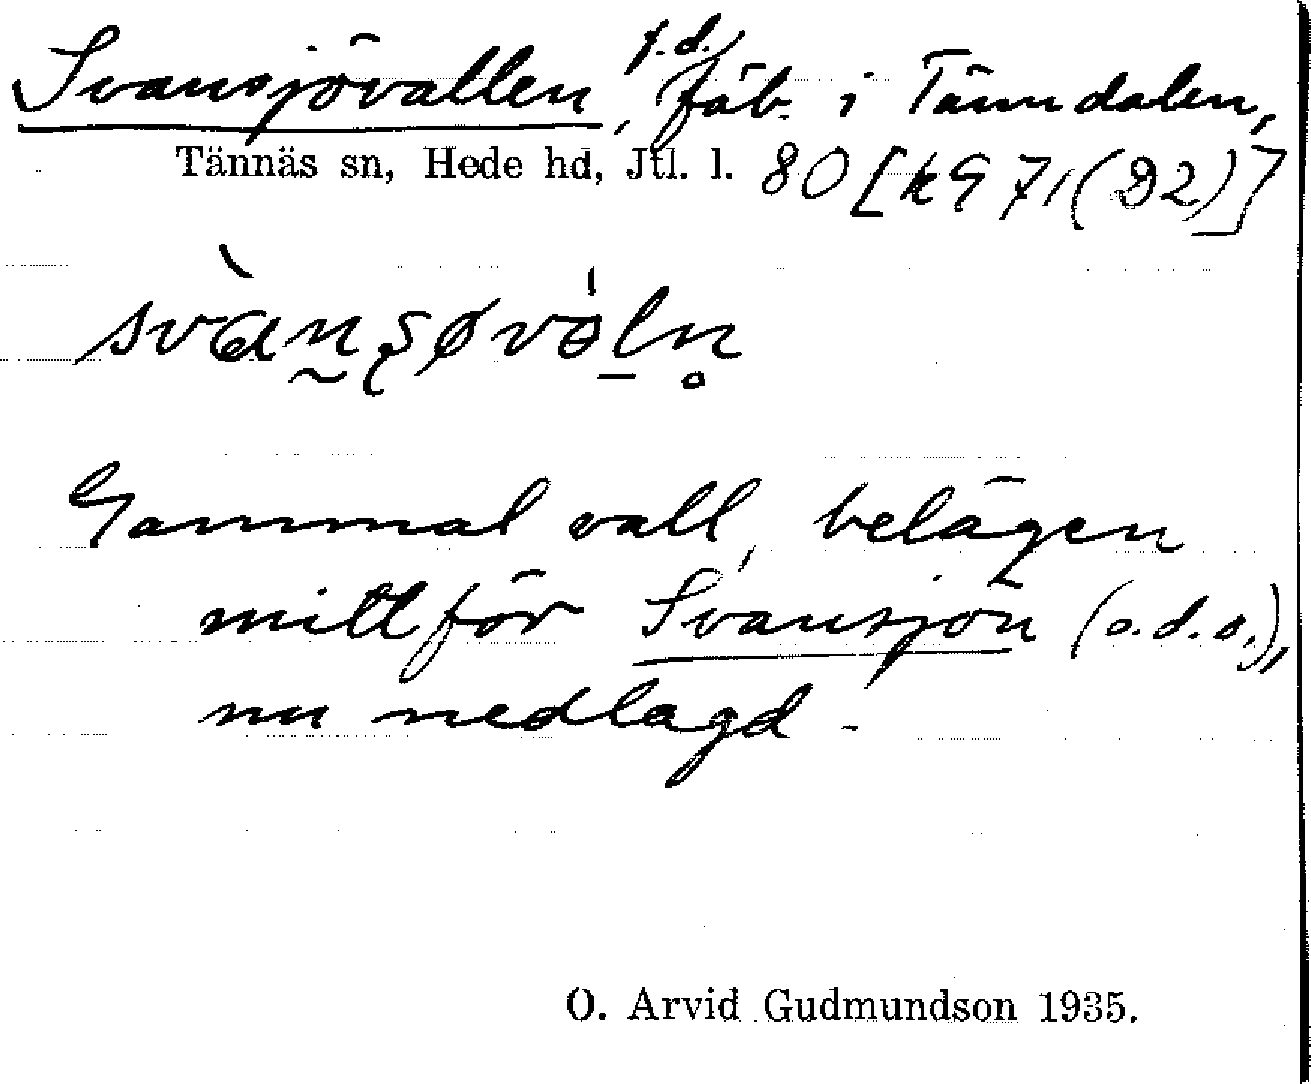 Svansjövallen, f.d. fäb. i Tänndalen,
Tännäs sn, Hede hd, Jtl. l. 80 [k971(D2)]
Gammal vall, belägen
mitt för Svansjön (s.d.o.),
nu nedlagd.
O. Arvid Gudmundson 1935.